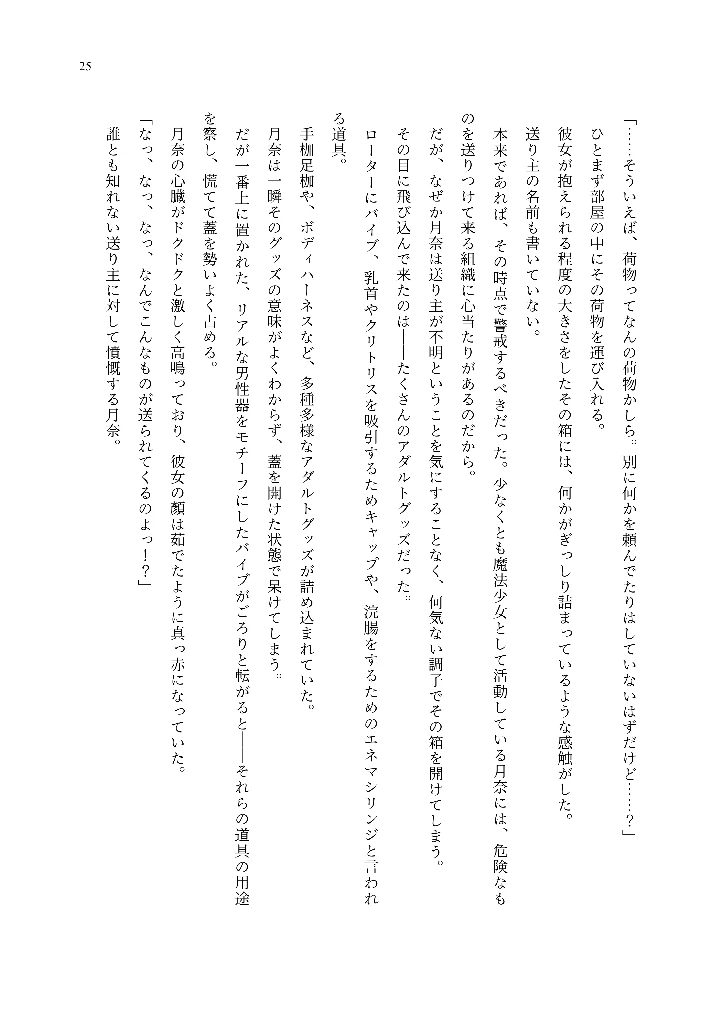 25
「……そういえば、荷物ってなんの荷物かしら。別に何かを頼んでたりはしていないはずだけど……？」
ひとまず部屋の中にその荷物を運び入れる。
彼女が抱えられる程度の大きさをしたその箱には、何かがぎっしり詰まっているような感触がした。
送り主の名前も書いていない。
本来であれば、その時点で警戒するべきだった。少なくとも魔法少女として活動している月奈には、危険なも
のを送りつけて来る組織に心当たりがあるのだから。
だが、なぜか月奈は送り主が不明ということを気にすることなく、何気ない調子でその箱を開けてしまう。
その目に飛び込んで来たのは――たくさんのアダルトグッズだった。
ローターにバイブ、乳首やクリトリスを吸引するためキャップや、浣腸をするためのエネマシリンジと言われ
る道具。
手枷足枷や、ボディハーネスなど、多種多様なアダルトグッズが詰め込まれていた。
月奈は一瞬そのグッズの意味がよくわからず、蓋を開けた状態で呆けてしまう。
だが一番上に置かれた、リアルな男性器をモチーフにしたバイブがごろりと転がると――それらの道具の用途
を察し、慌てて蓋を勢いよく占める。
月奈の心臓がドクドクと激しく高鳴っており、彼女の顔は茹でたように真っ赤になっていた。
「なっ、なっ、なっ、なんでこんなものが送られてくるのよっ！？」
誰とも知れない送り主に対して憤慨する月奈。